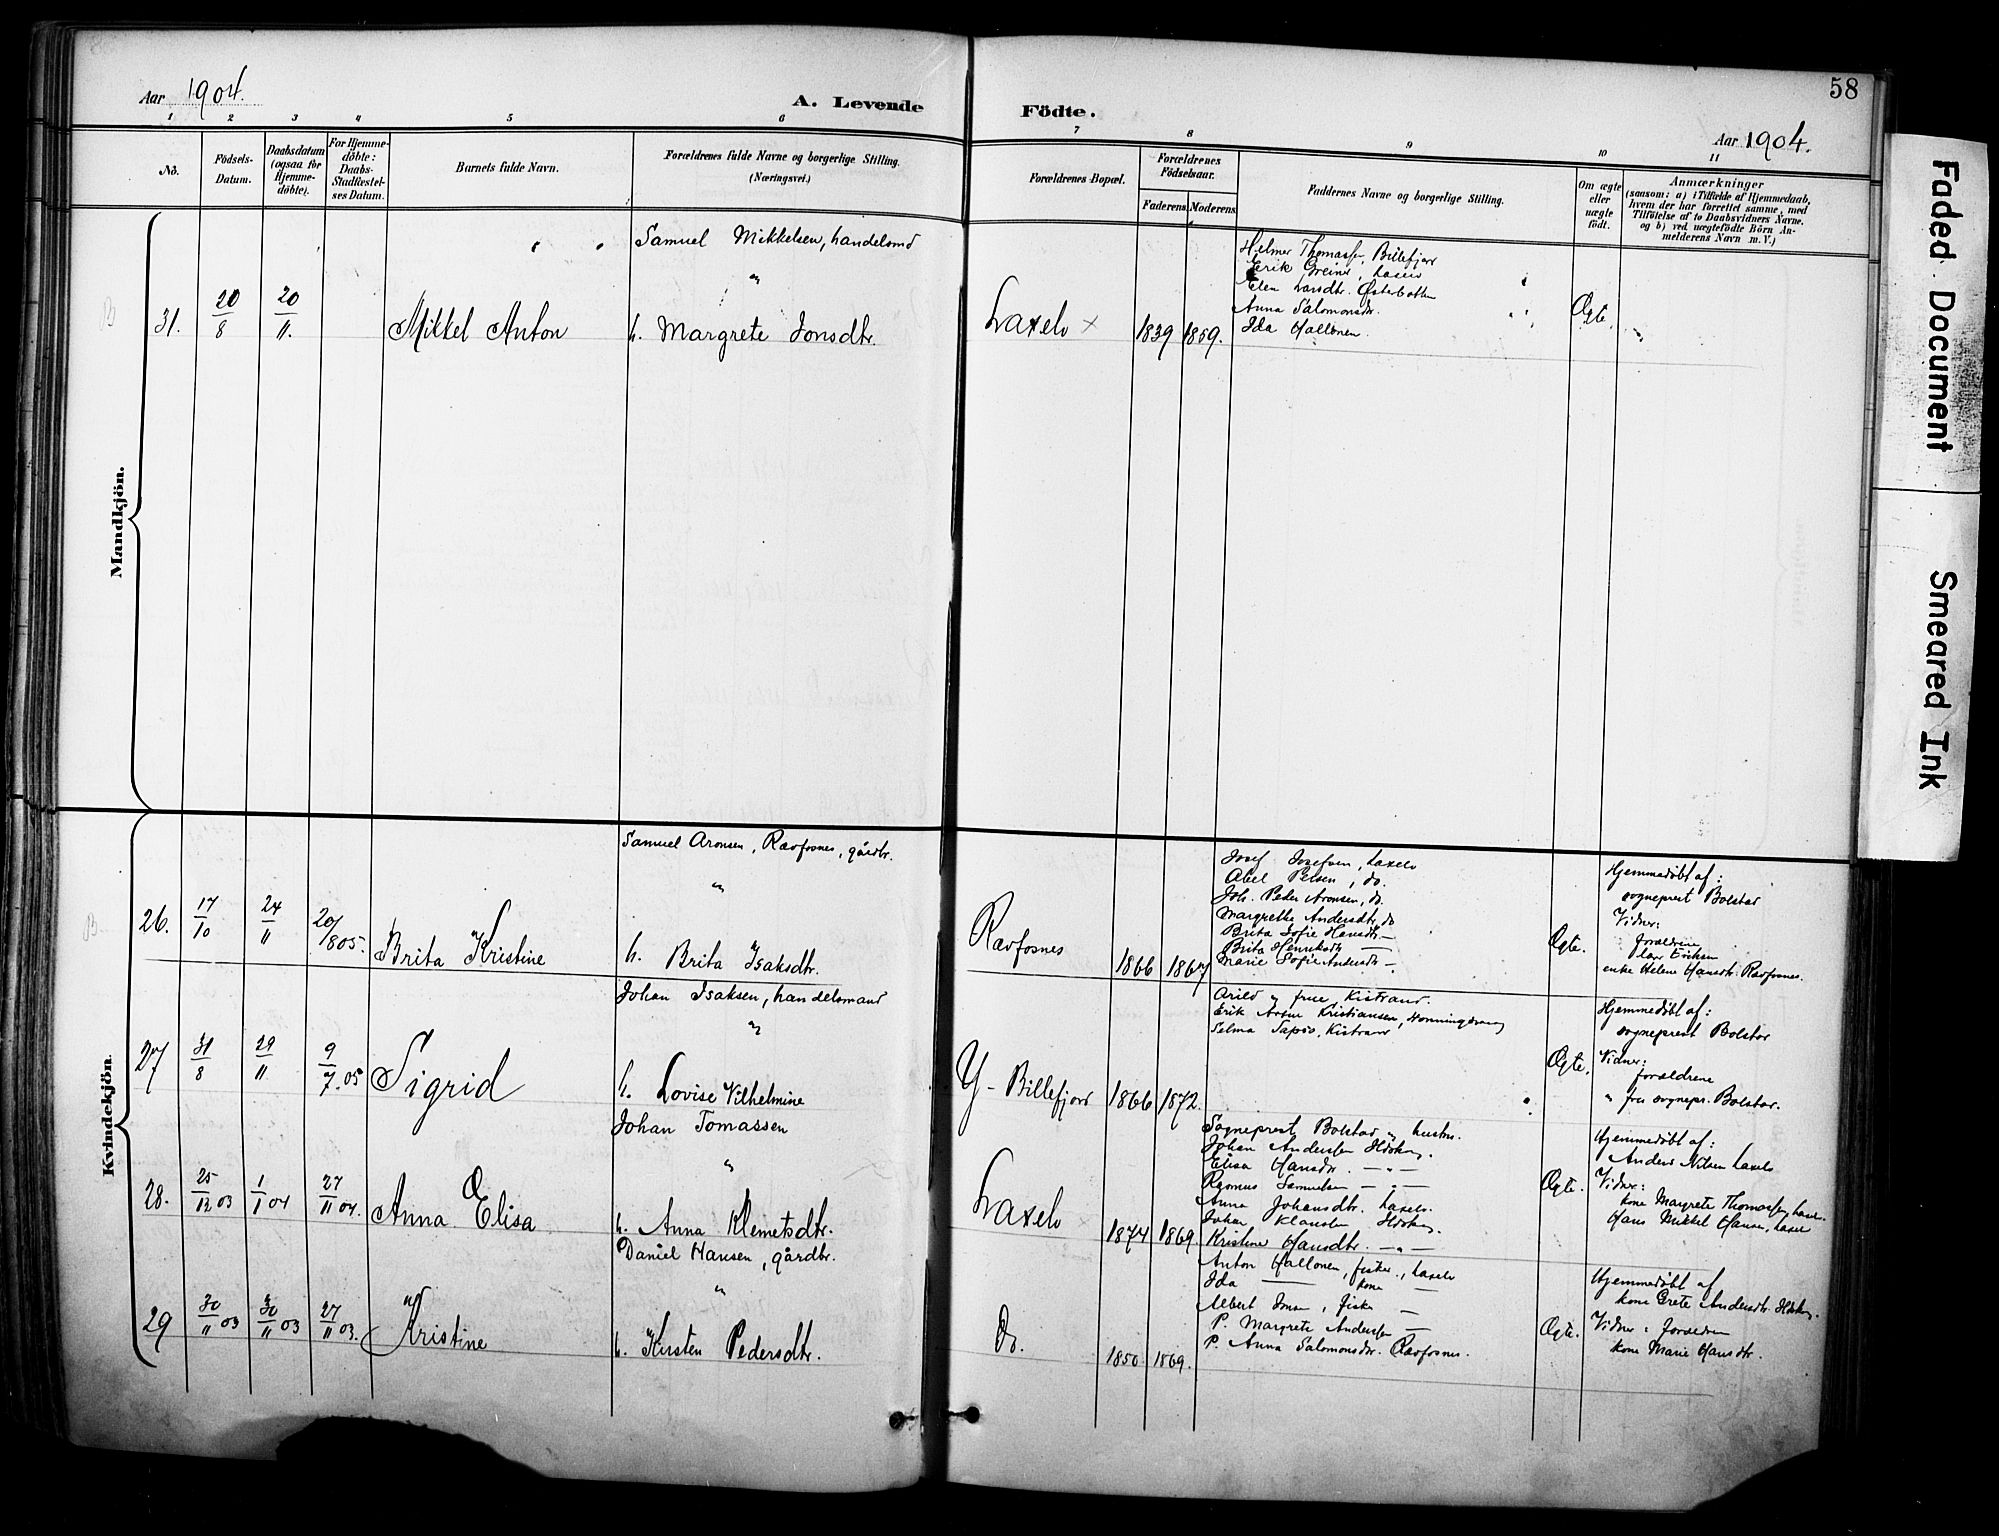 58
Aar 1904.
A. Levende Födte.
Aar 1904.
1 2 3 4 5 6 7 8 9 10 11
No.
Födsels-
Datum.
Daabsdatum
(ogsaa for
Hjemme-
döbte).
For Hjemme-
döbte:
Daabs-
Stadfæstel-
ses Datum.
Barnets fulde Navn.
Forældrenes fulde Navne og borgerlige Stilling.
(Næringsvei.)
Forældrenes Bopæl.
Forældrenes
Födselsaar.
Faderens. Moderens.
Faddernes Navne og borgerlige Stilling.
Om ægte
eller
uægte
født.
Anmærkninger
(saasom: a) i Tilfælde af Hjemmedaab,
hvem der har forrettet samme, med
Tilföielse af to Daabsvidners Navne.
og b) ved uægtefödte Börn An-
melderens Navn m. V.)
Mandkjön.
31.
20/8
20/11.
Mikkel Anton
Samuel Mikkelsen, handelsmd
"
h. Margrete Jonsdtr.
Laxelv ×
1839 1869.
Helmer Thomassen, Billefjord
Erik Greiner, Laxelv
Elen Larsdtr. Østerbotten
Anna Salomonsdtr.
Ida Hallonen.
Ægte.
Kvindekjön.
26.
17/10
24/11
20/8 05.
Brita Kristine
Samuel Aronsen, Ravfosnes, gårdbr.
"
h. Brita Isaksdtr.
Ravfosnes
1866 1867
Josef Josefsen, Laxelv
Abel Persen, do.
Joh. Peder Aronsen, do.
Margrethe Andersdtr, do
Brita Sofie Hansdtr —
Brita Henriksdtr —
Marie Sofie Andersdtr —.
Ægte.
Hjemmedøbt af:
sogneprest Bolstad
Vidner:
forældrene
Lars Eriksen
enke Helene Hansdtr. Ravfosnes.
27
31/8
29/11
9/7.05
Sigrid
Johan Isaksen, handelsmand
"
h. Lovise Vilhelmine
Y-Billefjord
1866 1872.
Arild og frue Kistrand.
Erik Arthur Kristiansen, Honningsvaag
Selma Sapio, Kistrand
Ægte.
Hjemmedøbt af:
sogneprest Bolstad
Vidner:
forældrene
" fru sognepr. Bolstad.
28.
25/12 03
1/1 04
27/11 04.
Anna Elisa
Johan Tomassen
"
h. Anna Klemetsdtr.
Laxelv
1874 1869
Sogneprest Bolstad og hustru.
Johan Andersen
Elisa Hansdtr. — " —
Rasmus Samuelsen — " —
Anna Johansdtr. Laxelv.
Johan Klausen
Kristine Hansdtr. — " —
Ægte.
Hjemmedøbt af:
Anders Nilsen Laxelv
Vidner:
kone Margrete Thomassen, Laxe.
Hans Mikkel Hansen, Laxelv
29
30/11 03
30/11 03
27/11 03.
Kristine
Daniel Hansen, gårdbr.
"
h. Kirsten Pedersdtr.
Do.
1850 1869.
Anton Hallonen, fisker, Laxelv
Ida — kone —
Albert Jonsen, fisker —
P. Margrete Andersen —
P. Anna Salomonsdtr. Ravfosnes.
Ægte.
Hjemmedøbt af
kone Grete Andersdtr.
Vidner: forældrene
kone Marie Hansdtr.
Faded Document
Smeared Ink